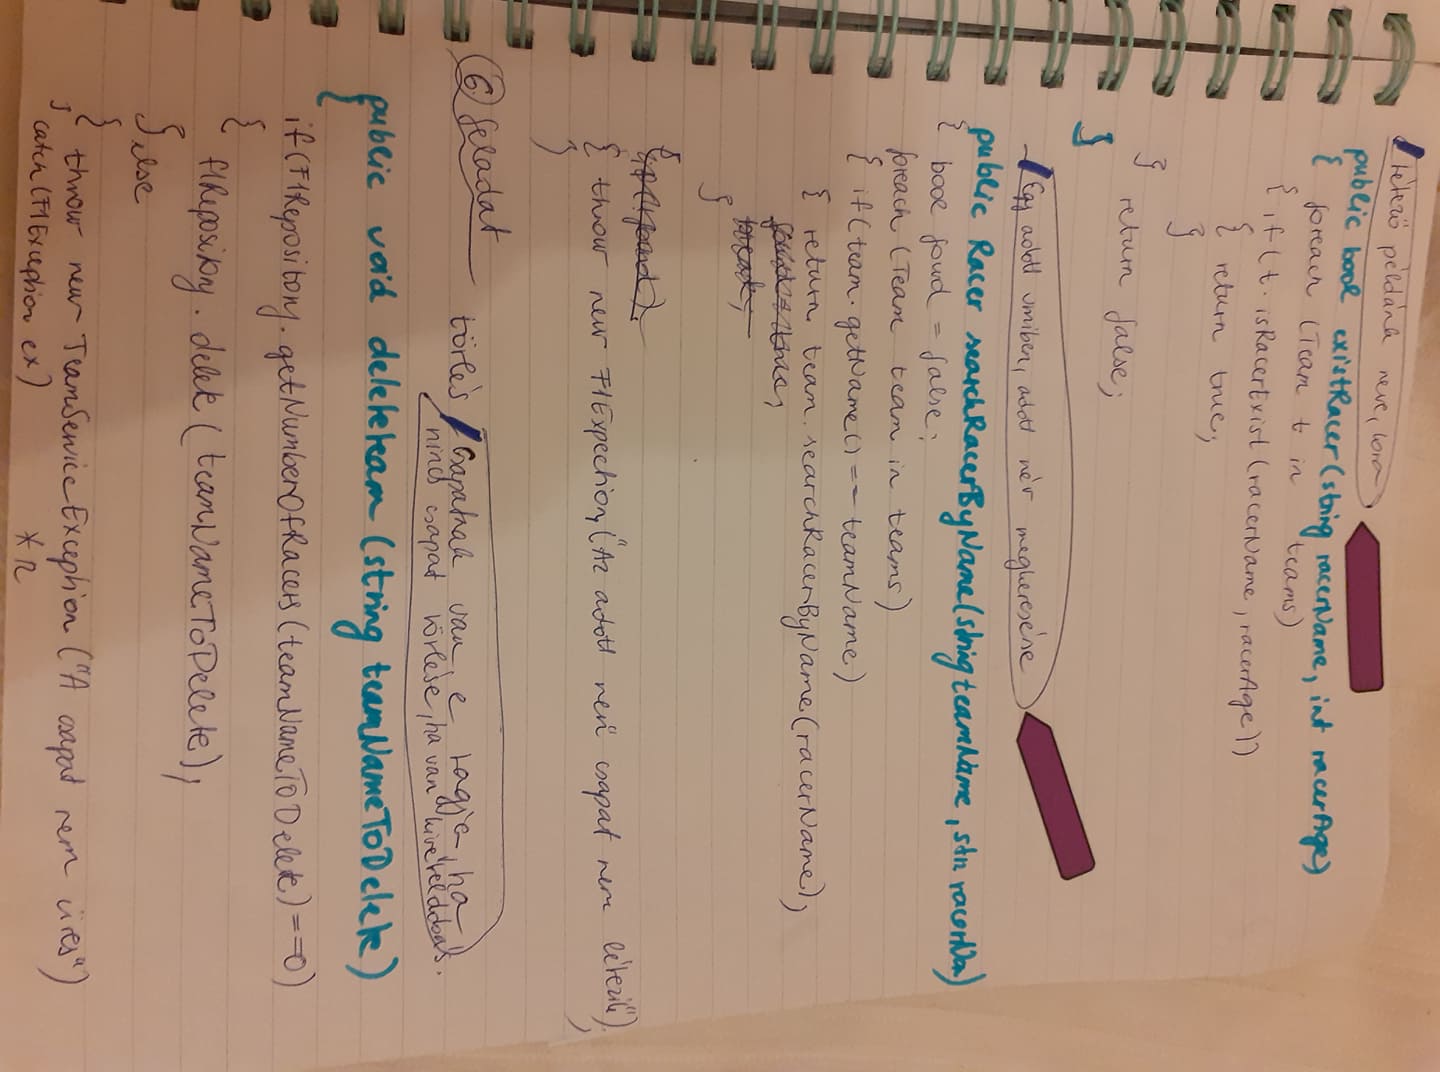 létező példána neve, kora
public bool existRacer(string racerName, int racerAge)
{ foreach (Team t in teams)
{ if(t.isRacerExist(racerName, racerAge))
{ return true;
}
}
return false;
}
Egy adott vmiben, adott név megkeresése
public Racer searchRacerByName(string teamName, stn racerNa)
{ bool found = false;
foreach (Team team in teams)
{ if(team.getName() == teamName)
{ return team.searchRacerByName(racerName);
}
{ throw new F1Expection("Az adott nevű csapat nem létezik");
}
6. feladat törlés
csapatnak van e tagja, ha
nincs csapat törlése, ha van kivételdobás.
public void deleteteam (string teamNameToDelete)
{
if(F1Repository.getNumberOfRacers(teamNameToDelete)==0)
{
f1Repository.delete(teamNameToDelete);
} else
{ throw new TeamServiceException("A csapat nem üres")
} catch(F1Exception ex)